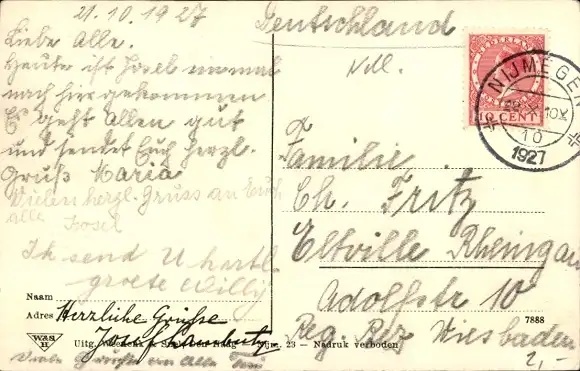 21.10.1927
Liebe Alle.
Heute ist Josef einmal
nach hier gekommen
Es geht Allen gut
und sendet Euch herzl.
Gruß Maria
Vielen herzl. Gruss an Euch
alle Josef
Ik send U hartl.
groete Willy
Naam
Adres Herzliche Grüsse
Josef
WAS
H
Uitg. Den Haag
23 - Nadruk verboden
Viele Grüße an Alle
Deutschland
Ndl.
NEDERLAND
10 CENT
NIJMEGEN
10
1927
Familie
Ch. Fritz
Eltville Rheingau
Adolfstr 10
7888
Reg. Bez Wiesbaden
2,-